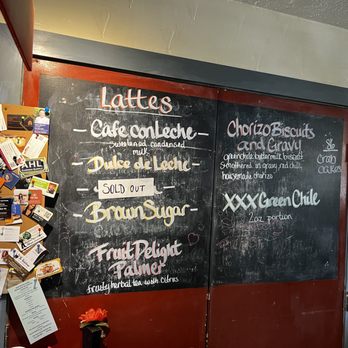 Lattes
- Cafe con Leche -
sweetened condensed
milk
- Dulce de Leche -
SOLD OUT
- Brown Sugar -
Fruit Delight
Palmer
fruity herbal tea with citrus
Chorizo Biscuits
and Gravy
green chile buttermilk biscuit
smothered in gravy, red chili,
housemade chorizo
XXX Green Chile
2oz portion
AHL